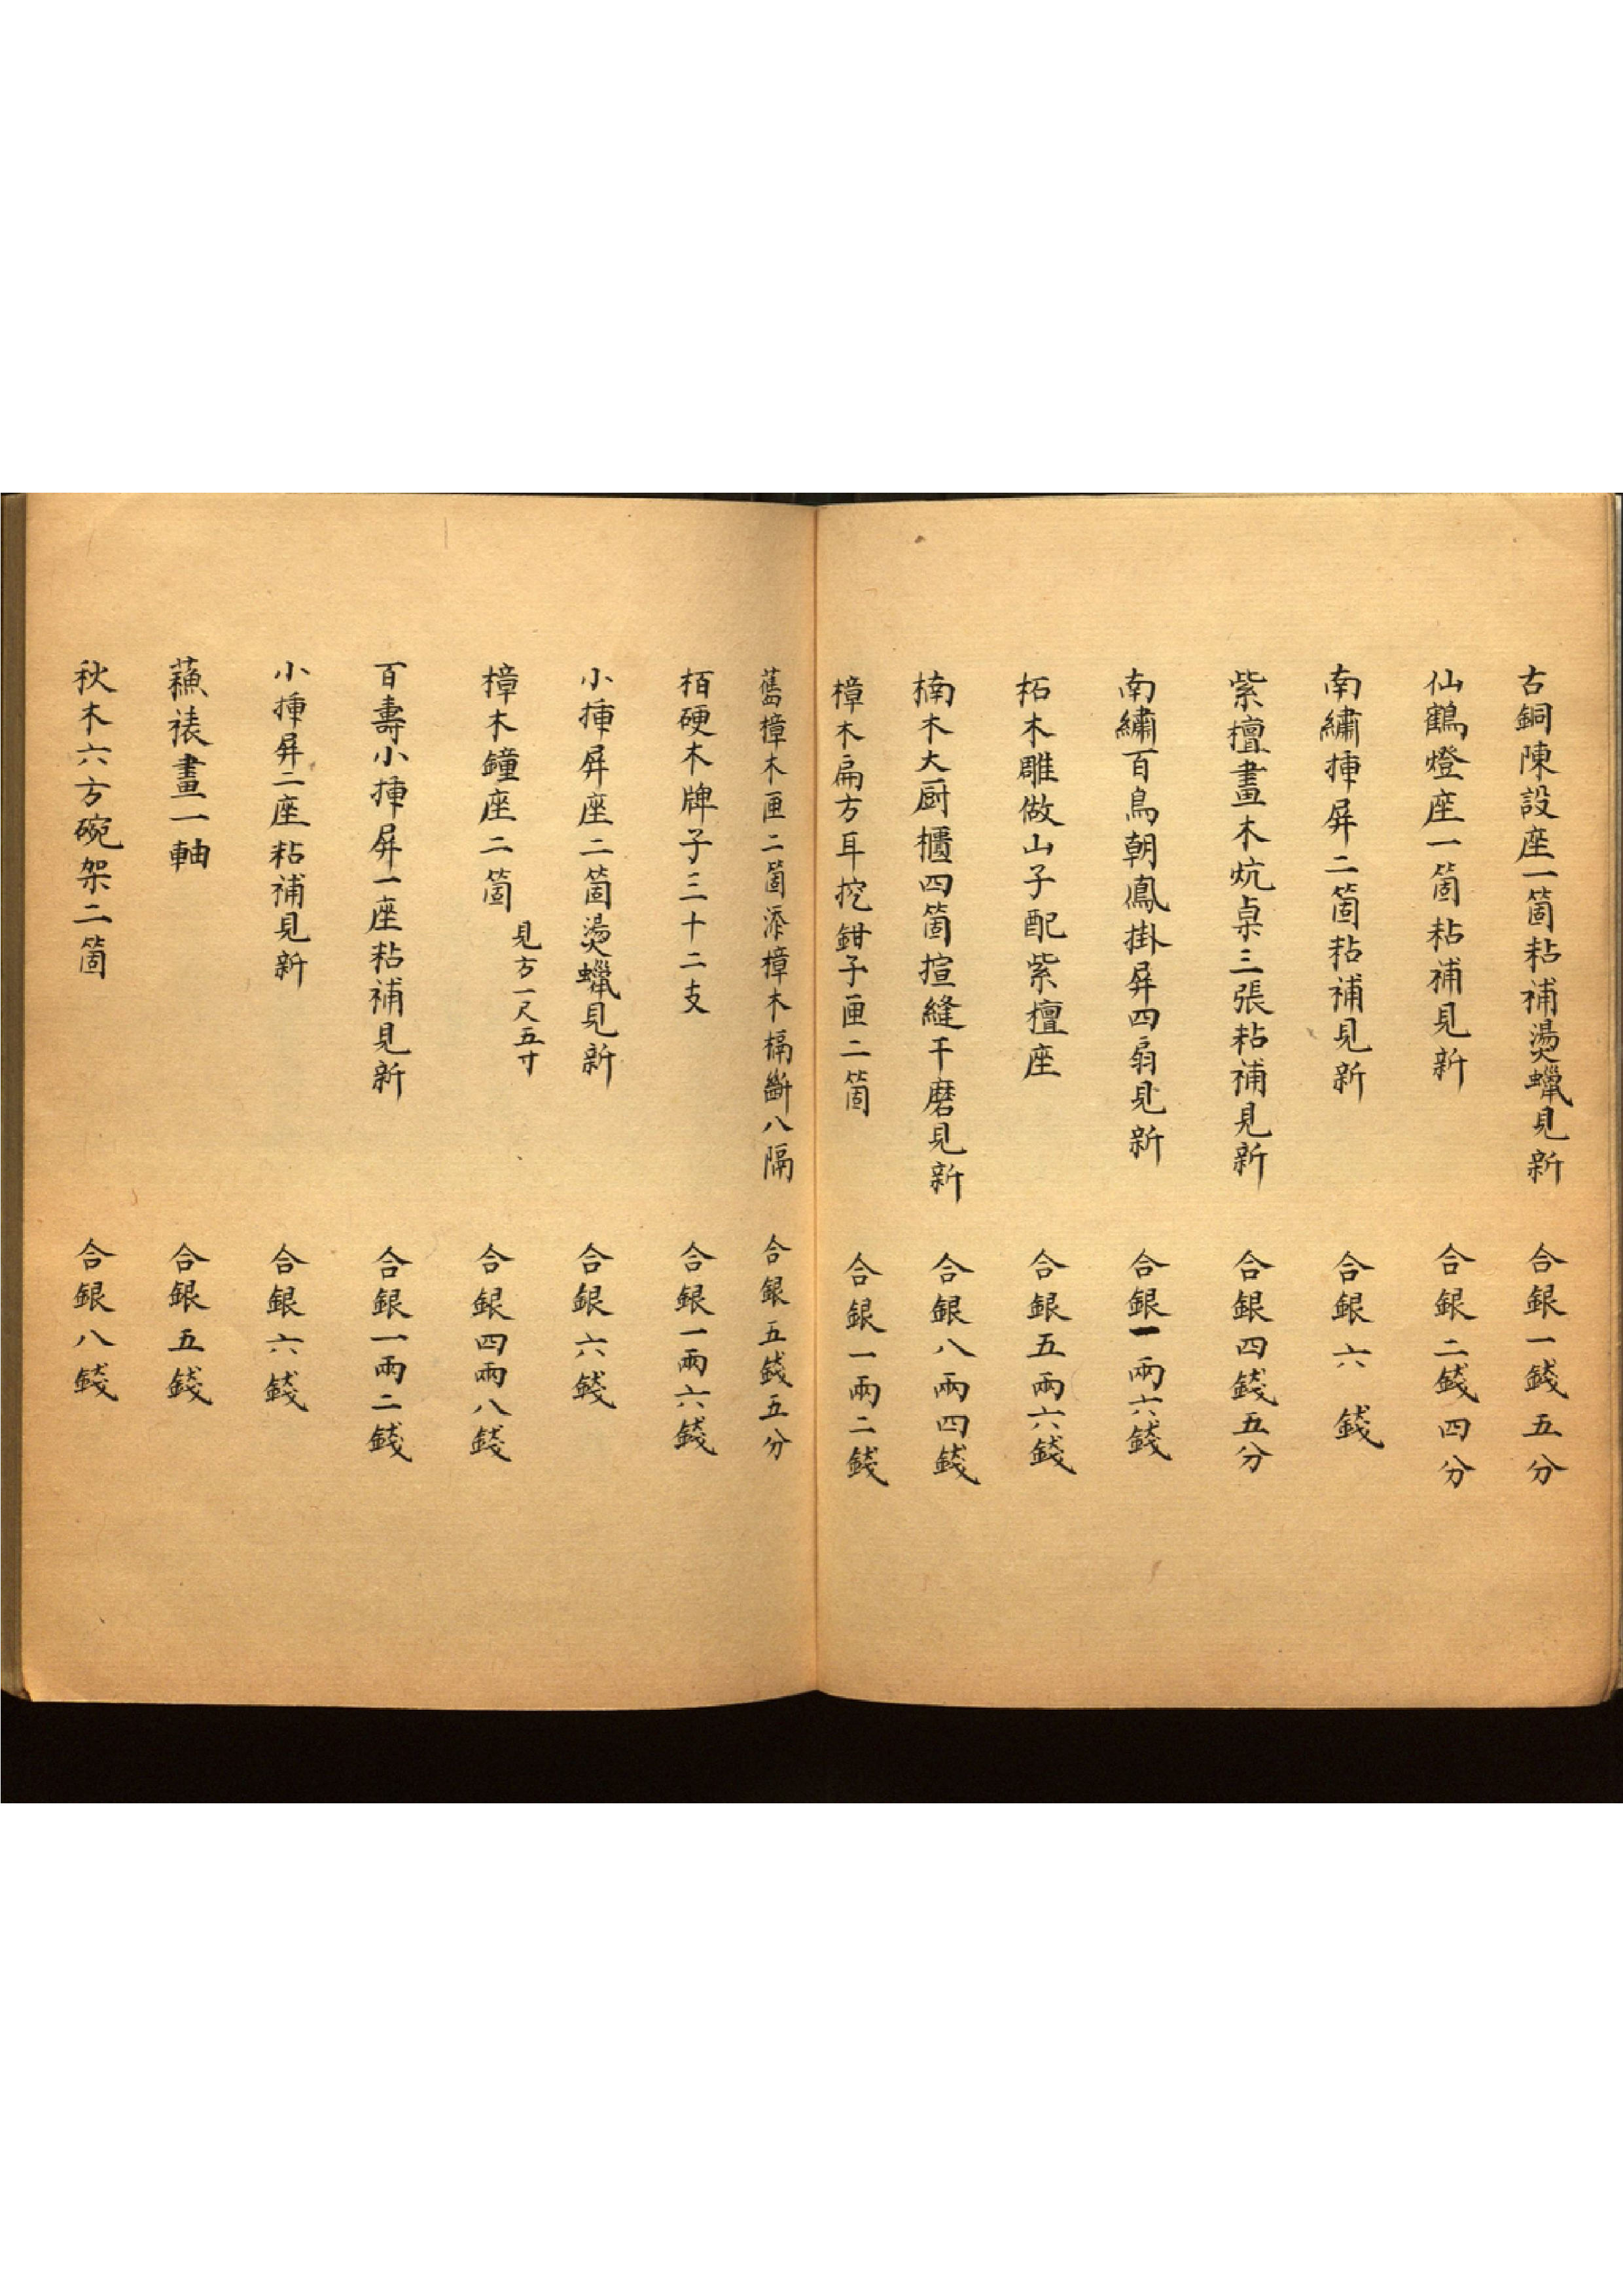 古銅陳設座一箇粘補燙蠟見新 合銀一錢五分
仙鶴燈座一箇粘補見新 合銀二錢四分
南繡揷屏二箇粘補見新 合銀六錢
紫檀畫木炕桌三張粘補見新 合銀四錢五分
南繡百鳥朝鳳掛屏四扇見新 合銀一兩六錢
柘木雕做山子配紫檀座 合銀五兩六錢
楠木大厨櫃四箇揎縫干磨見新 合銀八兩四錢
樟木扁方耳挖鉗子匣二箇 合銀一兩二錢
舊樟木匣二箇添樟木槅斷八隔 合銀五錢五分
栢硬木牌子三十二支 合銀一兩六錢
小揷屏座二箇燙蠟見新 合銀六錢
樟木鐘座二箇 見方一尺五寸 合銀四兩八錢
百壽小揷屏一座粘補見新 合銀一兩二錢
小揷屏二座粘補見新 合銀六錢
蘓裱畫一軸 合銀五錢
秋木六方碗架二箇 合銀八錢